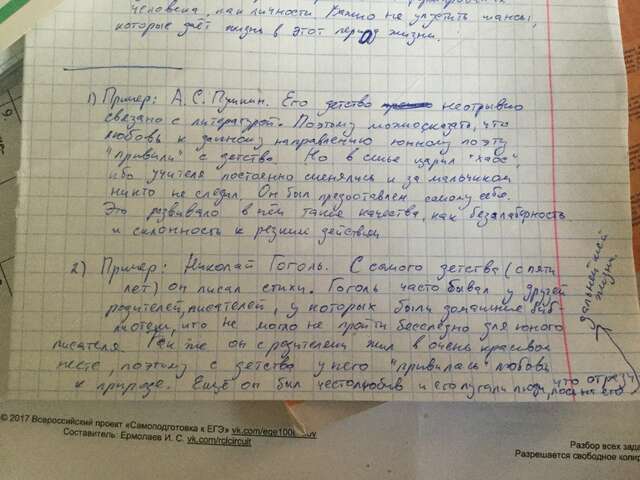 человека, как личности. Важно не упустить шансы,
которые даёт жизнь в этот период жизни.
1) Пример: А.С. Пушкин. Его детство неотрывно
связано с литературой. Поэтому можно сказать, что
любовь к данному направлению юнному поэту
"привили" с детства. Но в семье царил "хаос",
ибо учителя постоянно сменялись и за мальчиком
никто не следил. Он был предоставлен самому себе.
Это развивало в нём такие качества, как безалаберность
и склонность к резким действиям
2) Пример: Николай Гоголь. С самого детства (с пяти
лет) он писал стихи. Гоголь часто бывал у друзей
родителей, писателей, у которых были домашние биб-
лиотеки, что не могло не пройти бесследно для юного
писателя. Так же он с родителями жил в очень красивом
месте, поэтому с детства у него "привилась" любовь
к природе. Ещё он был честолюбив и его пугали люди, что отразилось на его
дальнейшей
жизни.
© 2017 Всероссийский проект «Самоподготовка к ЕГЭ» vk.com/ege100
Составитель: Ермолаев И. С. vk.com/rclcircuit
Разбор всех зада
Разрешается свободное копир
9